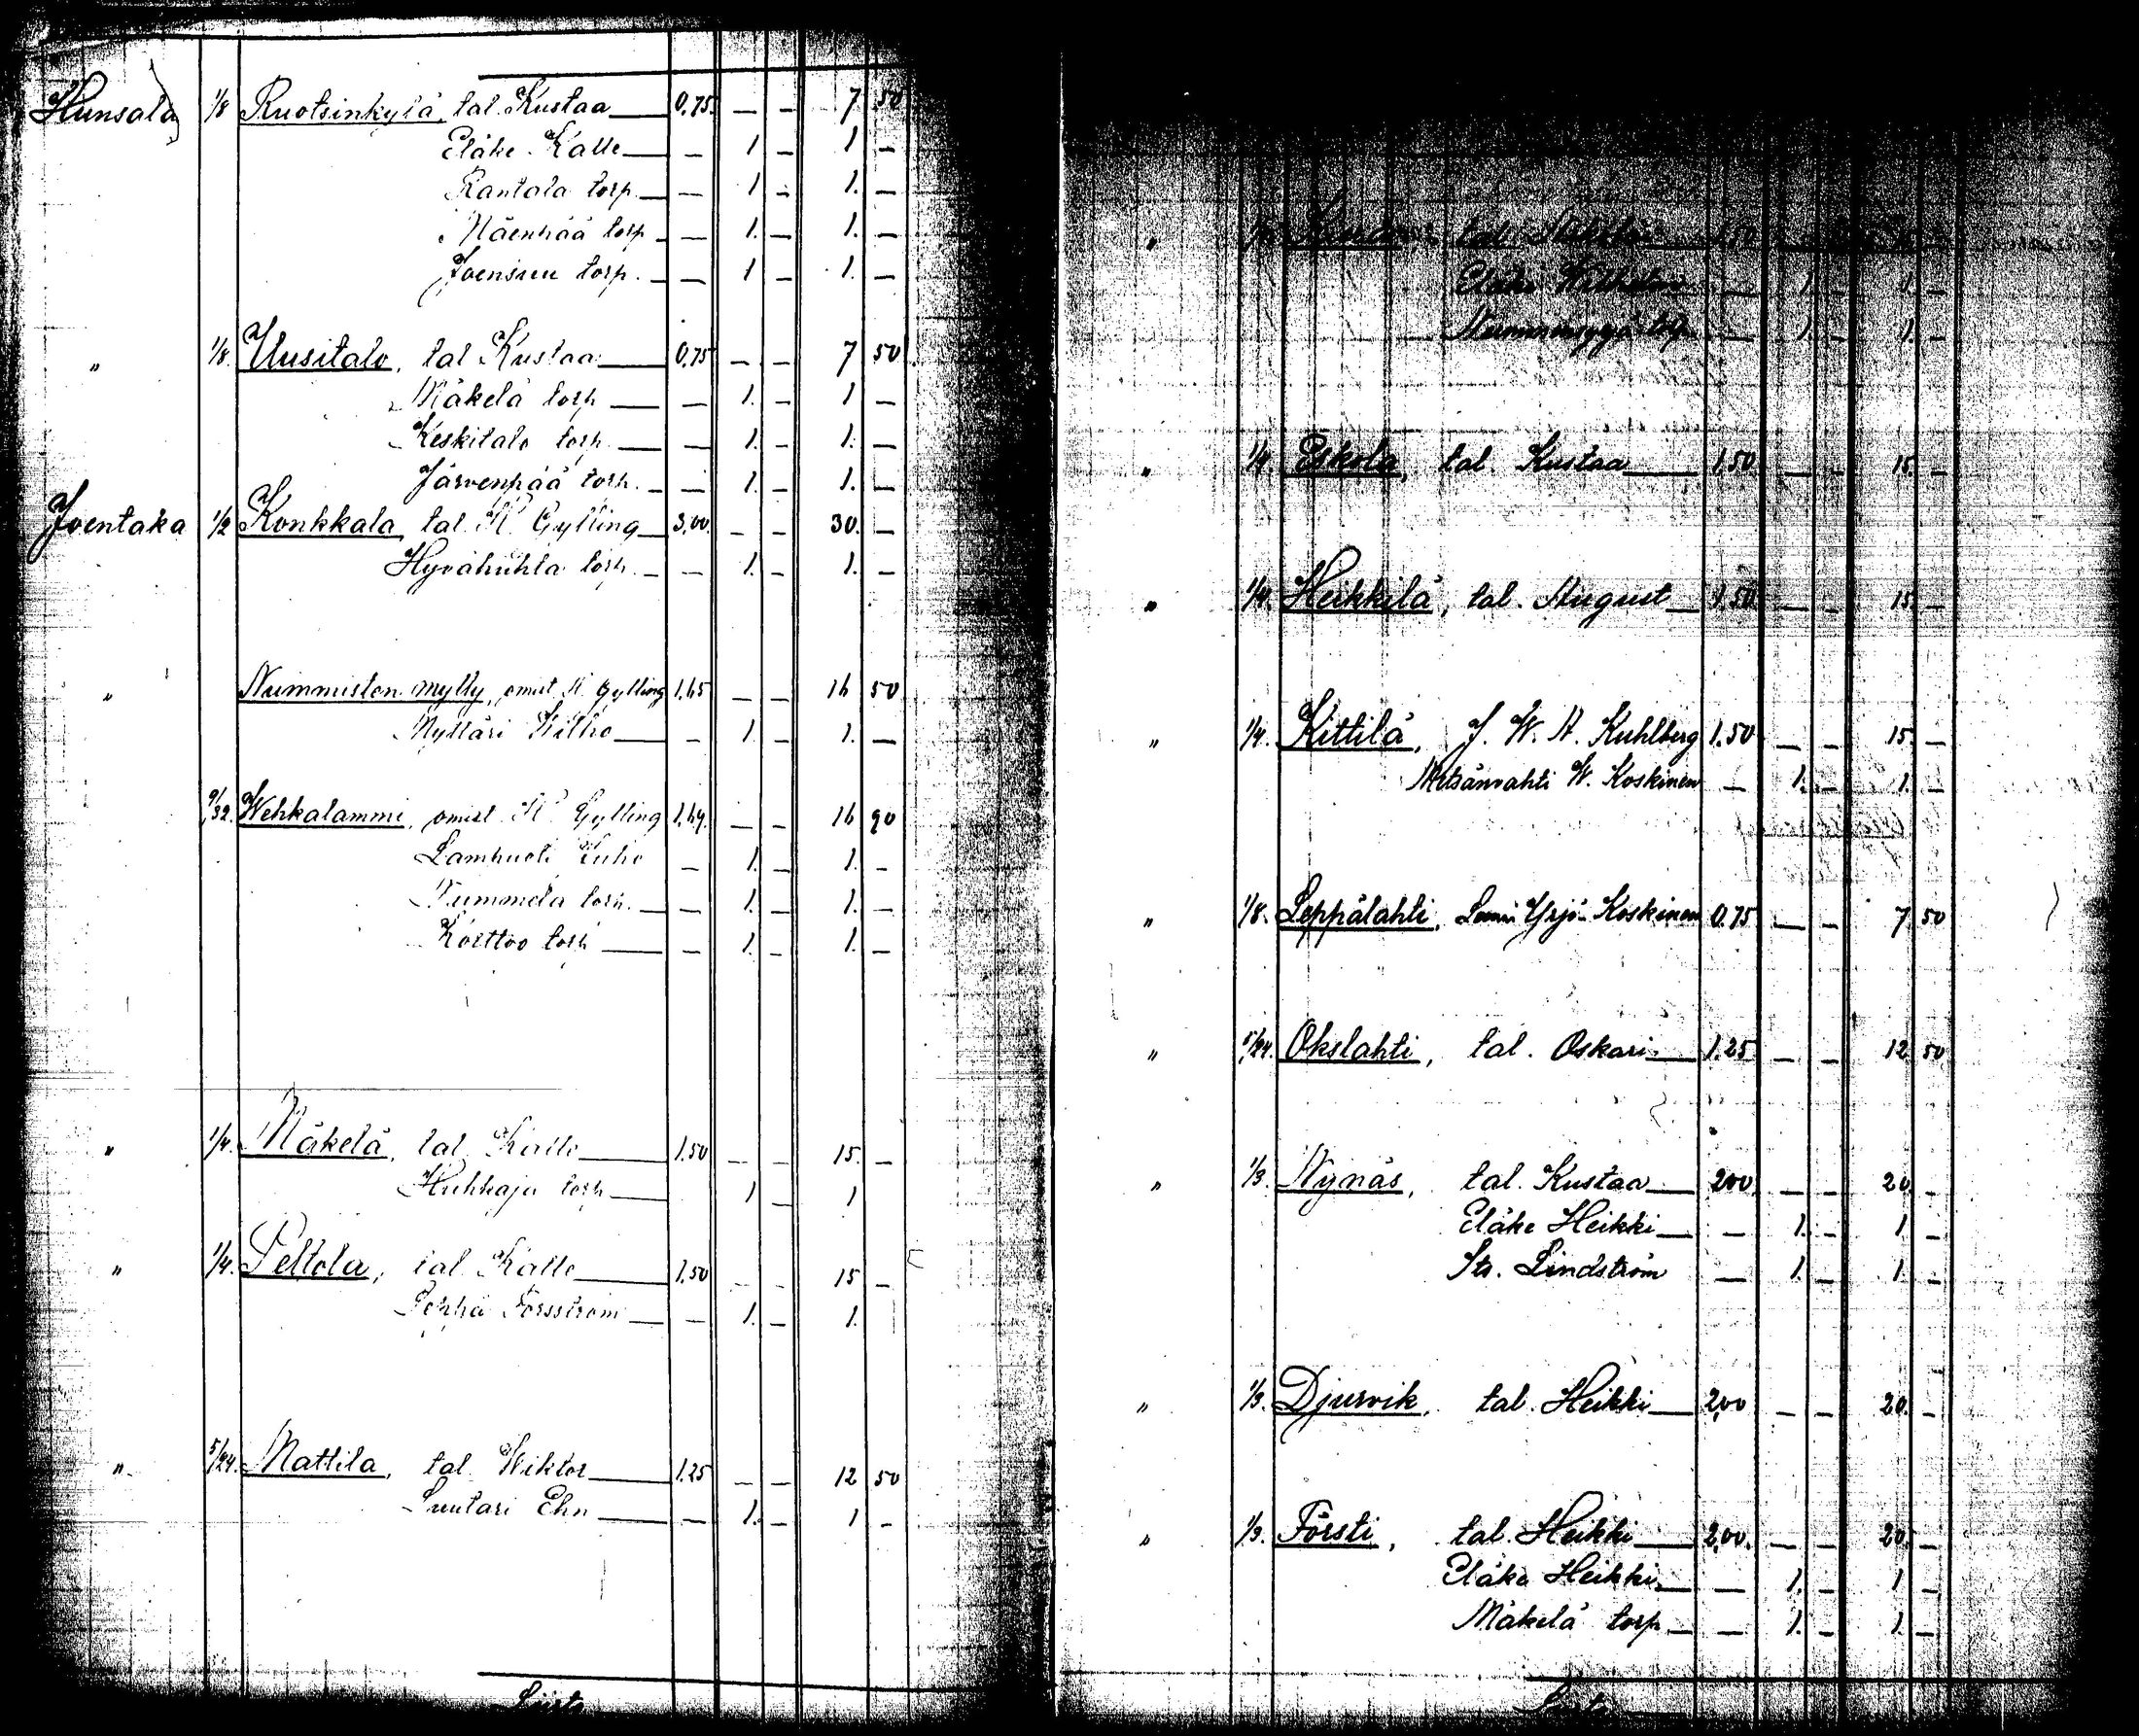 Hunsala 1/8 Ruotsinkylä, tal. Kustaa 0,75 — — 7 50
Eläke Kalle — 1 — 1 —
Rantala torp. — 1 — 1. —
Mäenpää torp — 1. — 1. —
Joensuu torp. — 1 — 1. —
„ 1/8. Uusitalo, tal Kustaa 0,75 — — 7 50
Mäkelä torp — 1. — 1 —
Keskitalo torp. — 1. — 1. —
Järvenpää torp. — 1. — 1. —
Joentaka 1/2 Konkkala, tal. K Gylling 3,00. — — 30. —
Hyvähuhta torp. — 1. — 1. —
„ Nummisten mylly, omist. K. Gylling 1,65 — — 16 50
Mylläri Wilho — 1 — 1. —
9/32. Wehkalammi, omist. K. Gylling 1,69. — — 16 90
Juho — 1 — 1. —
Nummela torp. — 1. — 1. —
Korttoo torp — 1. — 1. —
„ 1/4. Mäkelä, tal. Kalle 1,50 — — 15. —
Huhkaja torp — 1 — 1
„ 1/4. Peltola, tal. Kalle 1,50 — — 15 —
Seppä Forsström — 1. — 1.
„ 5/24. Mattila, tal. Wiktor 1,25 — — 12 50
Suutari Ehn — 1. — 1 —
Siirto
„ tal. 1,50
Eläke Wilhelm — 1. — 1. —
torp — 1. — 1. —
„ 1/4. Eskola, tal. Kustaa 1,50 — — 15. —
„ 1/4. Heikkilä, tal. August 1,50 — — 15. —
„ 1/4. Kittilä, J. W. A. Kuhlberg 1.50 — — 15. —
Metsänvahti W. Koskinen — 1. — 1. —
„ 1/8. Leppälahti, Yrjö-Koskinen 0,75 — — 7. 50
„ 5/24. Okslahti, tal. Oskari 1.25 — — 12 50
„ 1/3. Nynäs, tal. Kustaa 2,00. — — 20. —
Eläke Heikki — 1. — 1 —
Lindström — 1. — 1. —
„ 1/3. Djurvik, tal. Heikki 2,00 — — 20. —
„ 1/3. Försti, tal. Heikki 2,00. — — 20. —
Eläke Heikki — 1. — 1 —
Mäkelä torp — 1. — 1. —
Siirto